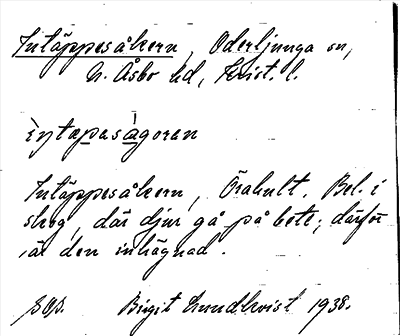 Intäppesåkern, Oderljunga sn,
N. Åsbo hd, Krist. l.
ìntapasàgoren
Intäppesåkern, Örahult. Bel. i
skog, där djur gå på bete; därför
är den inhägnad.
Birgit Lundkvist 1938.